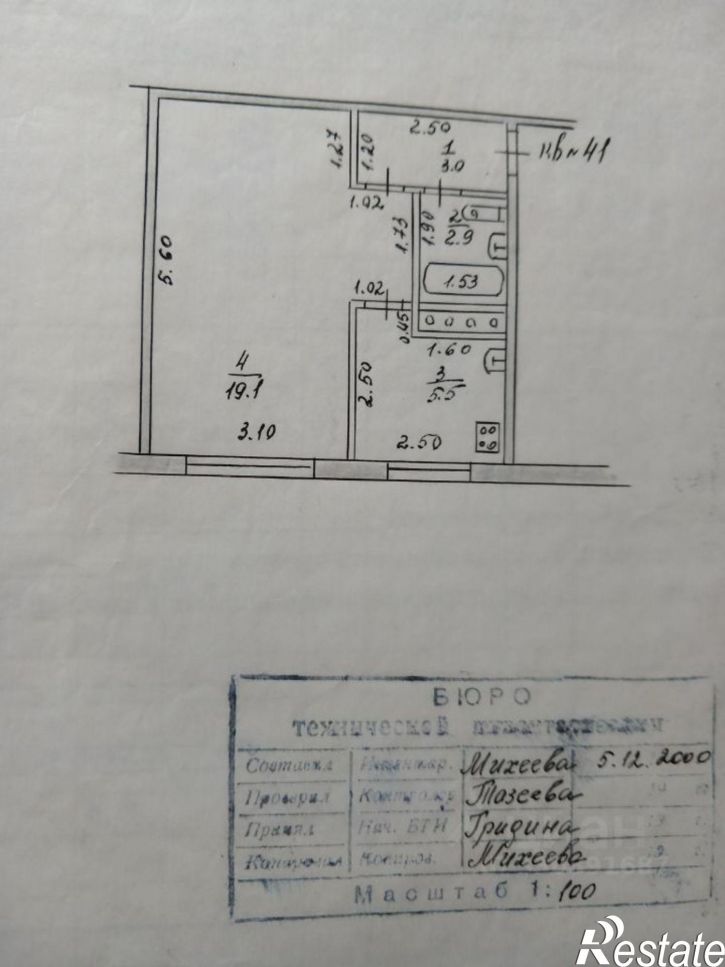 2.50
1.27
1.20
1
3.0
кв № 41
1.02
1.73
1.90
2
2.9
5.60
1.53
1.02
0.45
1.60
4
19.1
2.50
3
5.5
3.10
2.50
БЮРО
технической инвентаризации
Составил Инвентар. Михеева 5.12.2000
Проверил Контролер Тазеева
Принял Нач. БТИ Гридина
Копировал Копиров. Михеева
Масштаб 1:100
Restate